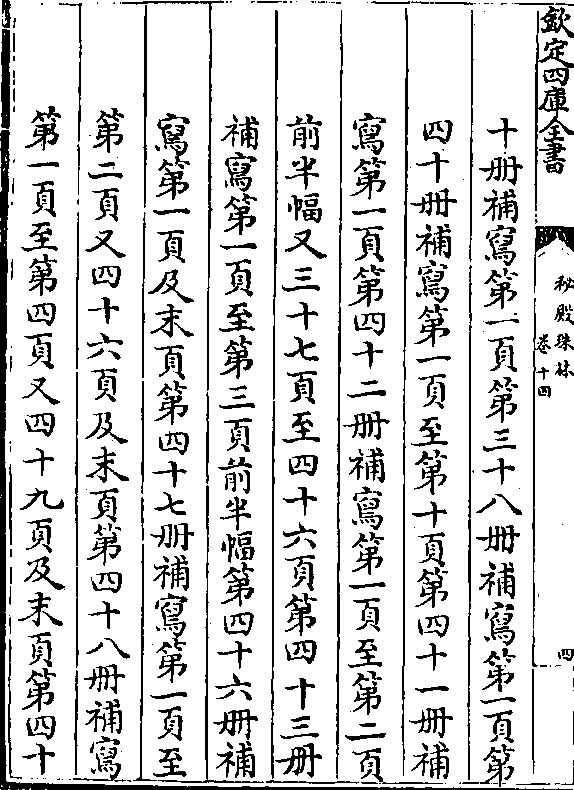 欽定四庫全書
秘殿珠林
卷十四
四
十册補寫第一頁第三十八册補寫第一頁第
四十册補寫第一頁至第十頁第四十一册補
寫第一頁第四十二册補寫第一頁至第二頁
前半幅又三十七頁至四十六頁第四十三册
補寫第一頁至第三頁前半幅第四十六册補
寫第一頁及末頁第四十七册補寫第一頁至
第二頁又四十六頁及末頁第四十八册補寫
第一頁至第四頁又四十九頁及末頁第四十